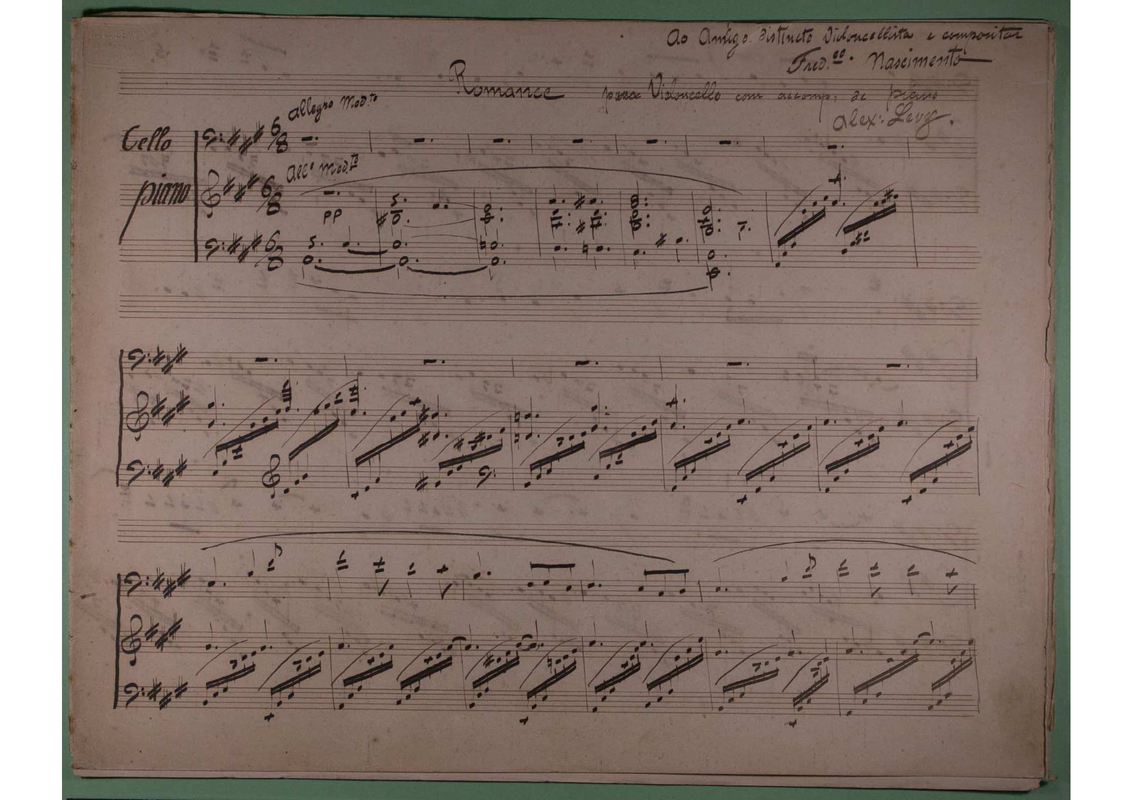 Ao Amigo distincto Violoncellista e compositor
Fred.co Nascimento
Romance para Violoncello com accomp. de piano
Alex. Levy.
Allegro Mod.to
Cello 6/8
All.o Mod.to
piano 6/8
pp
6/8